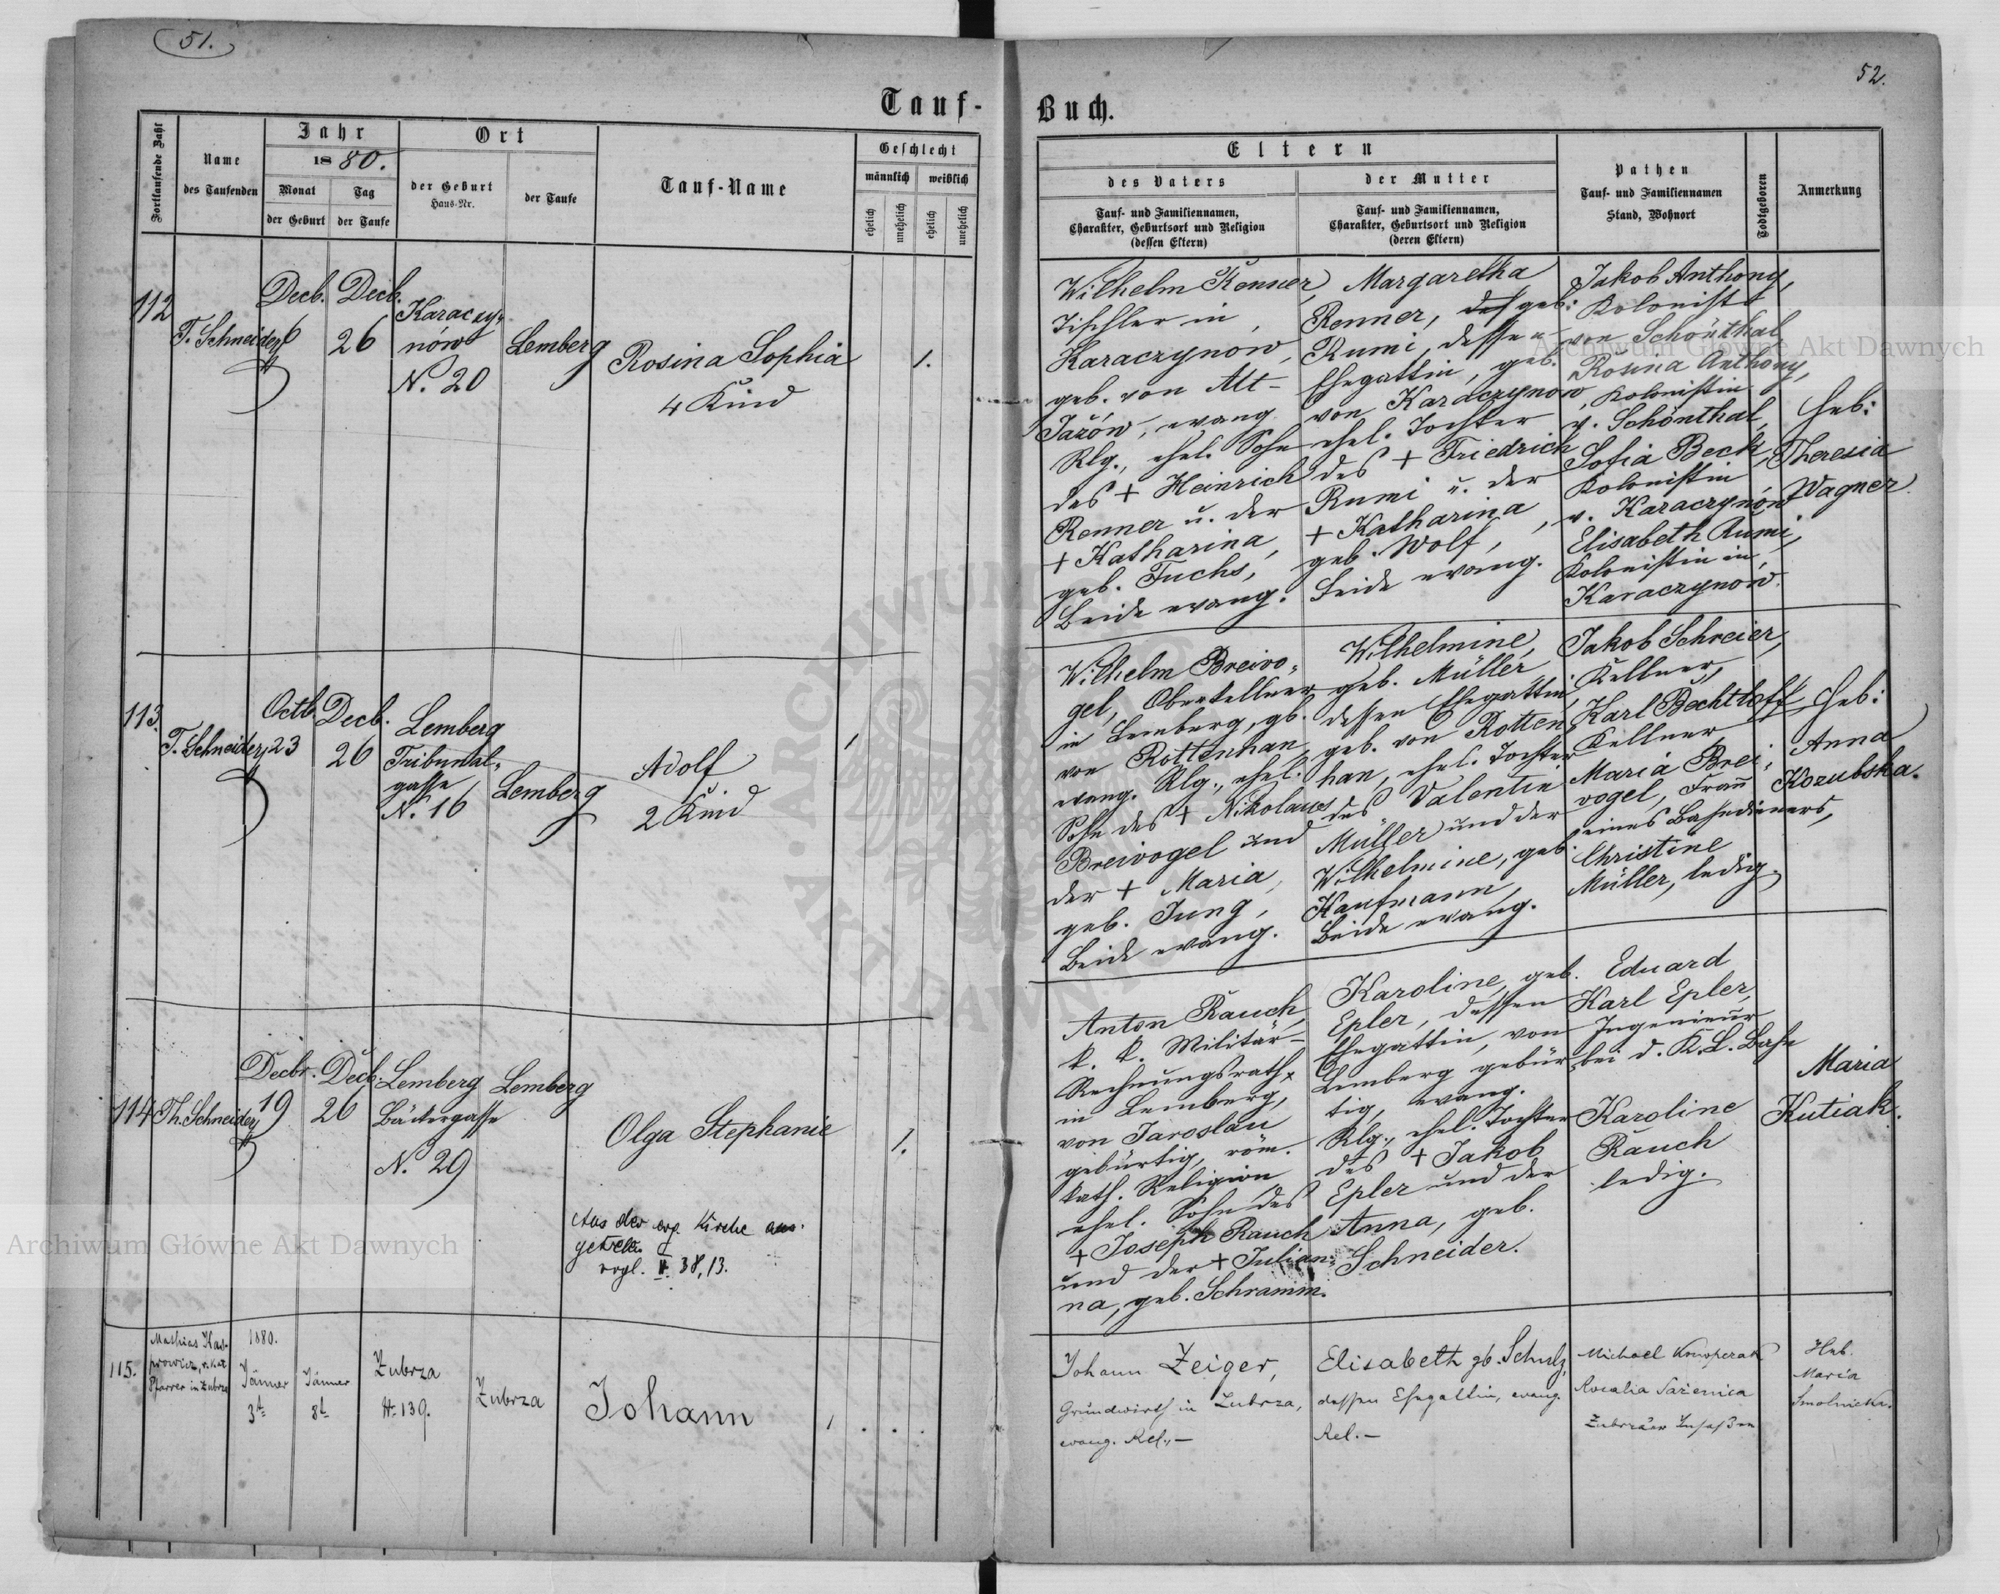 51.
52.
Tauf-
Buch.
Fortlaufende Zahl
Name
des Taufenden
Jahr
1880.
Monat
der Geburt
Tag
der Taufe
Ort
der Geburt
Haus-Nr.
der Taufe
Tauf-Name
Geschlecht
männlich
weiblich
ehelich
unehelich
ehelich
unehelich
Eltern
des Vaters
Tauf- und Familiennamen,
Charakter, Geburtsort und Religion
(dessen Eltern)
der Mutter
Tauf- und Familiennamen,
Charakter, Geburtsort und Religion
(deren Eltern)
Pathen
Tauf- und Familiennamen
Stand, Wohnort
Todtgeboren
Anmerkung
112
T. Schneider
Decb.
6
Decb.
26
Karaczy-
nów
N. 20
Lemberg
Rosina Sophia
4 Kind
1.
Wilhelm Renner,
Tischler in
Karaczynow,
geb. von Alt-
Jazów, evang.
Rlg., ehel. Sohn
des + Heinrich
Renner u. der
+ Katharina,
geb. Fuchs,
Beide evang.
Margaretha
Renner, geb:
Rumi, dessen
Ehegattin, geb.
von Karaczynow,
ehel. Tochter
des + Friedrich
Rumi u. der
+ Katharina
geb. Wolf,
Beide evang.
Jakob Anthony,
Kolonist
von Schönthal
Rosina Anthony,
Kolonistin
v. Schönthal,
Sofia Beck,
Kolonistin
v. Karaczynów
Elisabeth Rumi,
Kolonistin in
Karaczynów.
Heb:
Theresia
Wagner.
113.
T. Schneider
Octb.
23
Decb.
26
Lemberg
Tribunal-
gasse
N. 16
Lemberg
Adolf
2 Kind
1
Wilhelm Breivo-
gel, Oberkellner
in Lemberg, gb.
von Rottenhan,
evang. Rlg., ehel.
Sohn des + Nikolaus
Breivogel und
der + Maria,
geb. Jung,
Beide evang.
Wilhelmine,
geb. Müller
dessen Ehegattin,
geb. von Rotten-
han, ehel. Tochter
des Valentin
Müller und der
Wilhelmine, geb.
Kaufmann,
Beide evang.
Jakob Schreier,
Kellner,
Karl Bechtloff
Kellner
Maria Brei-
vogel, Frau
eines Bahndieners,
Christine
Müller, ledig.
Heb:
Anna
Kozubska.
114
Th. Schneider
Decbr.
19
Decb.
26
Lemberg
Bäckergasse
N. 29
Lemberg
Olga Stephanie
1.
Aus der evg. Kirche aus-
getreten
vrgl. V. 38,13.
Anton Rauch,
k. k. Militär-
Rechnungsrath
in Lemberg,
von Jaroslau
gebürtig, röm.
kath. Religion
ehel. Sohn des
+ Joseph Rauch
und der + Julian-
na, geb. Schramm.
Karoline, geb.
Epler, dessen
Ehegattin, von
Lemberg gebür-
tig, evang.
Rlg., ehel. Tochter
des + Jakob
Epler und der
Anna, geb.
Schneider.
Eduard
Karl Epler,
Ingenieur
bei d. K. L. Bahn
Karoline
Rauch
ledig.
Maria
Kutiak.
115.
Mathias Kas-
prowicz, r. kat
Pfarrer in Zubrza
1880.
Jänner
3t
Jänner
8t
Zubrza
H. 139.
Zubrza
Johann
1
Johann Zeiger,
Grundwirth in Zubrza,
evang. Rel.,—
Elisabeth gb. Schulz,
dessen Ehegattin, evang.
Rel.—
Michael Konoperak
Rozalia Sażenica
Zubrzaer Insaßen
Heb.
Maria
Smolnicka.
Archiwum Główne Akt Dawnych
Archiwum Główne Akt Dawnych